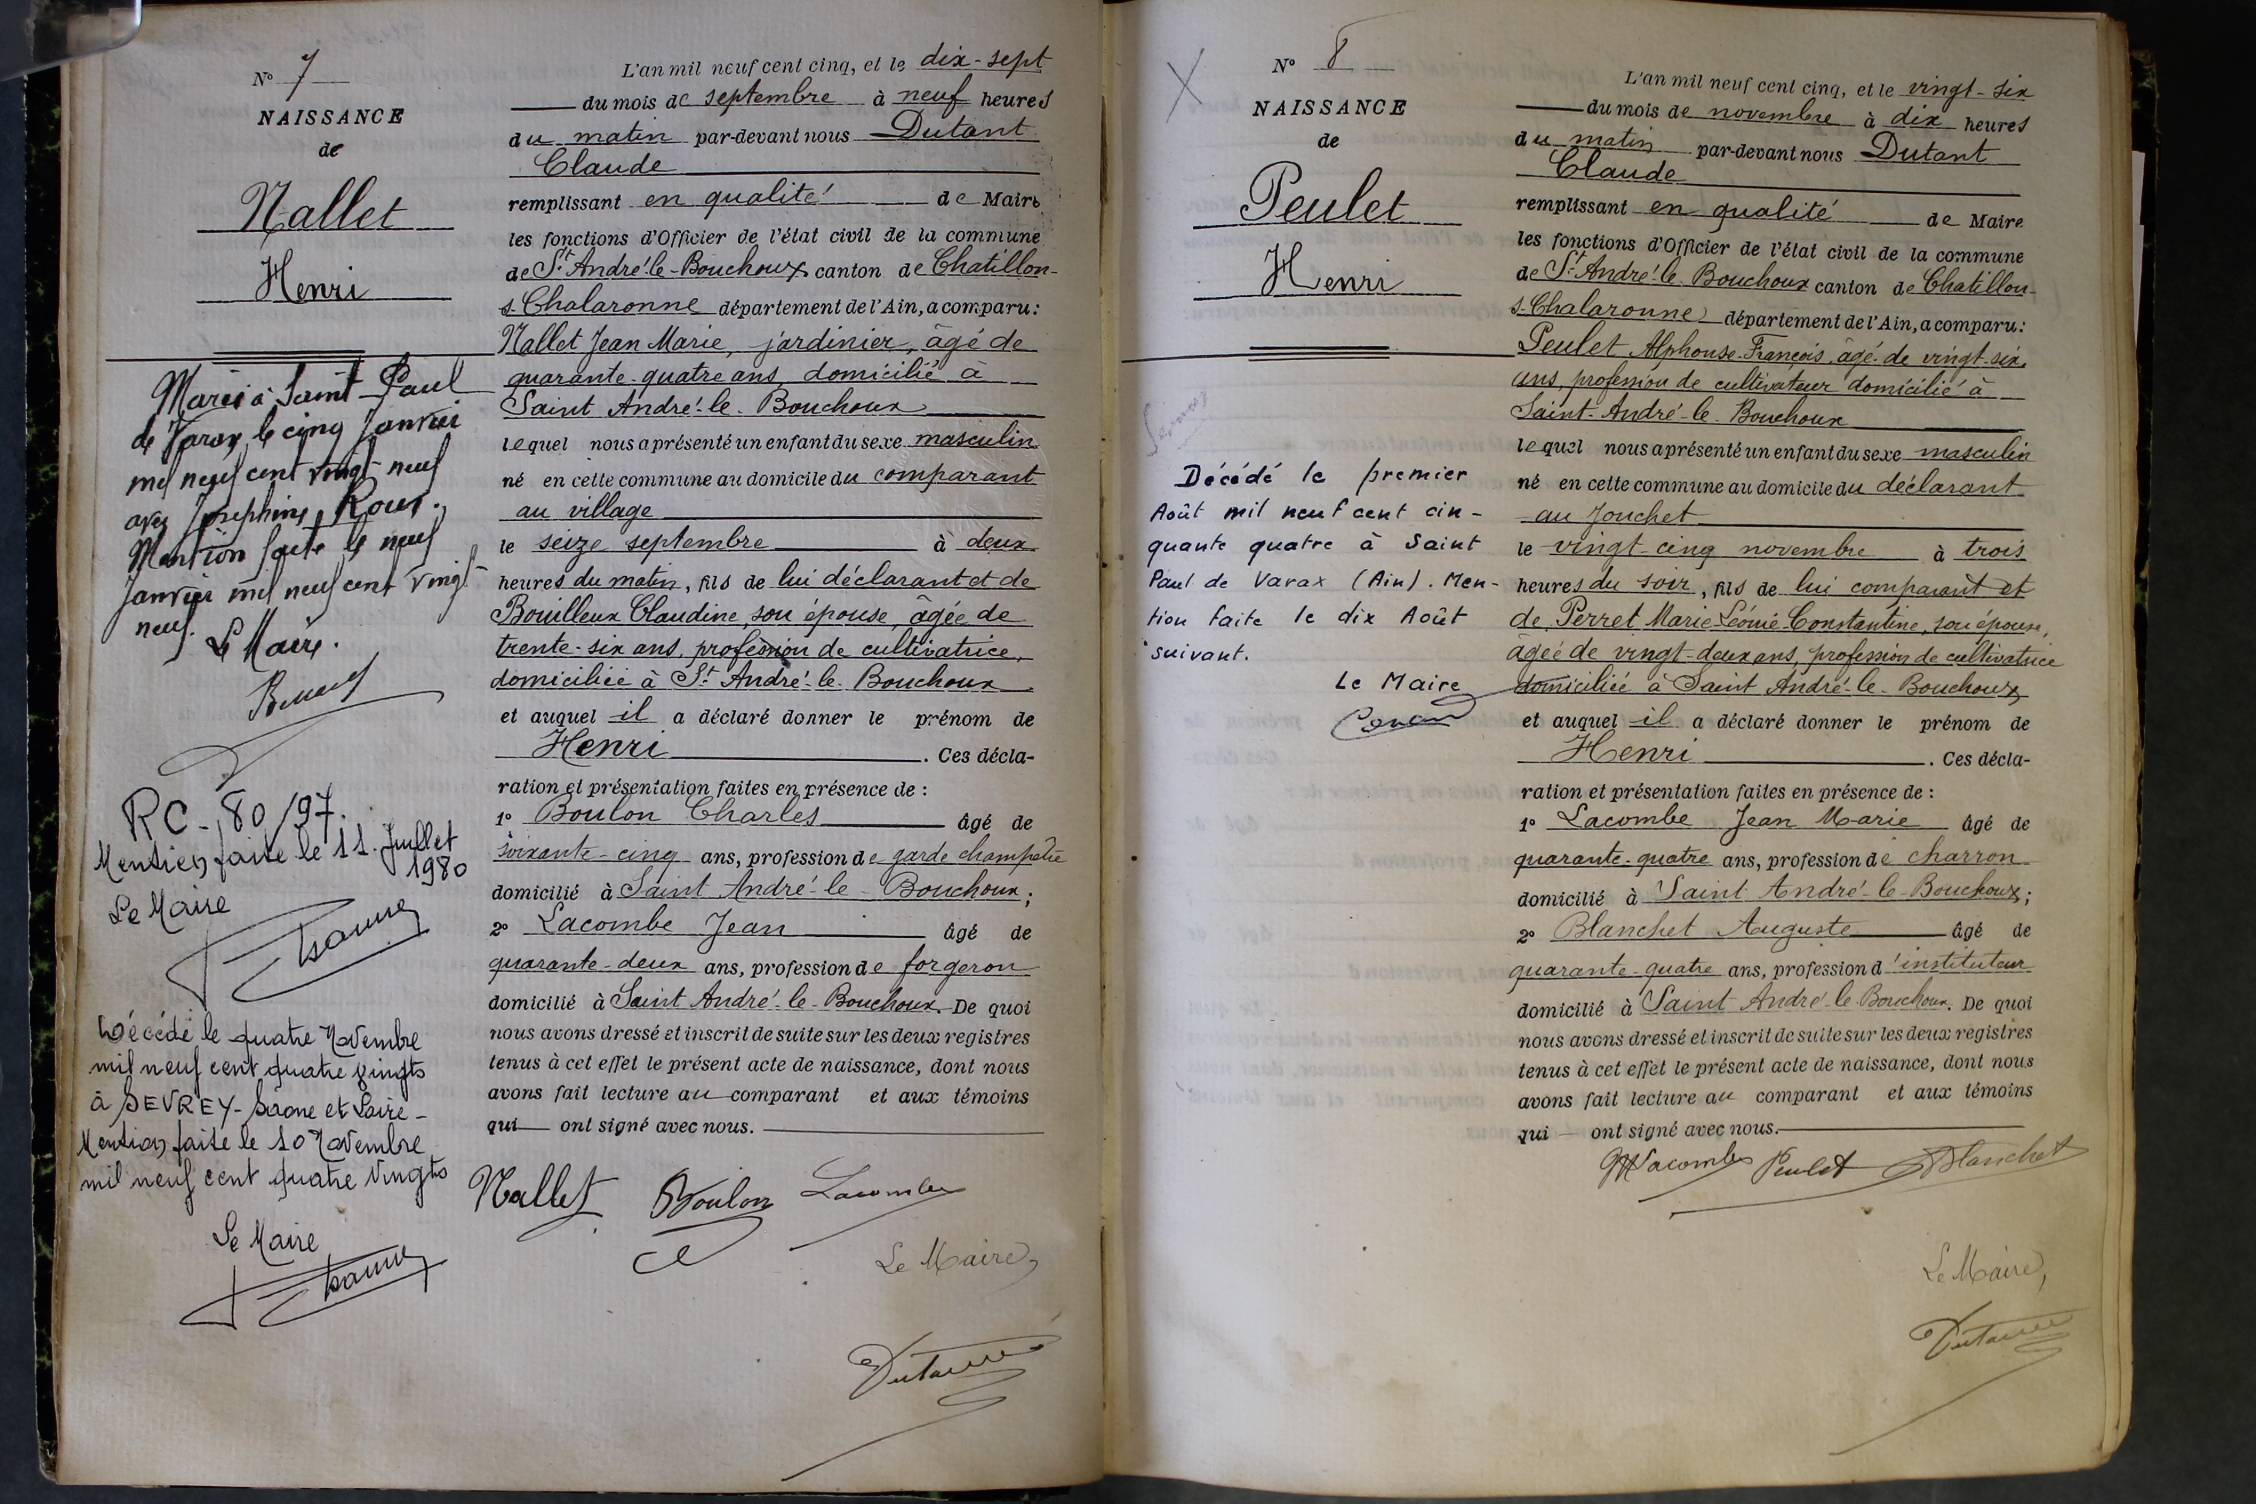 N° 7
NAISSANCE
de
Nallet
Henri
Marié à Saint Paul
de Varax, le cinq Janvier
mil neuf cent vingt-neuf
avec Josephine Roux.
Mention faite le neuf
Janvier mil neuf cent vingt-
neuf.
Le Maire.
RC - 80/97.
Mention faite le 11. Juillet
1980
Le Maire
Décédé le quatre Novembre
mil neuf cent quatre vingts
à SEVREY - Saone et Loire -
Mention faite le 10 Novembre
mil neuf cent quatre Vingts
Le Maire
L'an mil neuf cent cinq, et le dix-sept
du mois de septembre à neuf heures
du matin par-devant nous Dutant
Claude
remplissant en qualité de Maire
les fonctions d'Officier de l'état civil de la commune
de St André-le-Bouchoux canton de Chatillon-
s-Chalaronne département de l'Ain, a comparu:
Nallet Jean Marie, jardinier, âgé de
quarante-quatre ans, domicilié à
Saint André-le-Bouchoux
lequel nous a présenté un enfant du sexe masculin
né en cette commune au domicile du comparant
au village
le seize septembre à deux
heures du matin, fils de lui déclarant et de
Bouilleux Claudine, son épouse, âgée de
trente-six ans, profession de cultivatrice,
domiciliée à St André-le-Bouchoux
et auquel il a déclaré donner le prénom de
Henri. Ces décla-
ration et présentation faites en présence de :
1° Boulon Charles âgé de
soixante-cinq ans, profession de garde champêtre
domicilié à Saint André-le-Bouchoux ;
2° Lacombe Jean âgé de
quarante-deux ans, profession de forgeron
domicilié à Saint André-le-Bouchoux. De quoi
nous avons dressé et inscrit de suite sur les deux registres
tenus à cet effet le présent acte de naissance, dont nous
avons fait lecture au comparant et aux témoins
qui ont signé avec nous.
Nallet Boulon Lacombe
Le Maire,
Dutant
N° 8
NAISSANCE
de
Peulet
Henri
Décédé le premier
Août mil neuf cent cin-
quante quatre à Saint
Paul de Varax (Ain). Men-
tion faite le dix Août
suivant.
Le Maire
L'an mil neuf cent cinq, et le vingt-six
du mois de novembre à dix heures
du matin par-devant nous Dutant
Claude
remplissant en qualité de Maire
les fonctions d'Officier de l'état civil de la commune
de St André-le-Bouchoux canton de Chatillon-
s-Chalaronne département de l'Ain, a comparu:
Peulet Alphonse-François, âgé de vingt-six
ans, profession de cultivateur domicilié à
Saint-André-le-Bouchoux
lequel nous a présenté un enfant du sexe masculin
né en cette commune au domicile du déclarant
au Jouchet
le vingt-cinq novembre à trois
heures du soir, fils de lui comparant et
de Perret Marie Léonie Constantine, son épouse,
âgée de vingt-deux ans, profession de cultivatrice
domiciliée à Saint André-le-Bouchoux
et auquel il a déclaré donner le prénom de
Henri. Ces décla-
ration et présentation faites en présence de :
1° Lacombe Jean Marie âgé de
quarante-quatre ans, profession de charron
domicilié à Saint André-le-Bouchoux ;
2° Blanchet Auguste âgé de
quarante-quatre ans, profession d'instituteur
domicilié à Saint André-le-Bouchoux. De quoi
nous avons dressé et inscrit de suite sur les deux registres
tenus à cet effet le présent acte de naissance, dont nous
avons fait lecture au comparant et aux témoins
qui ont signé avec nous.
JMLacombe Peulet Blanchet
Le Maire,
Dutant